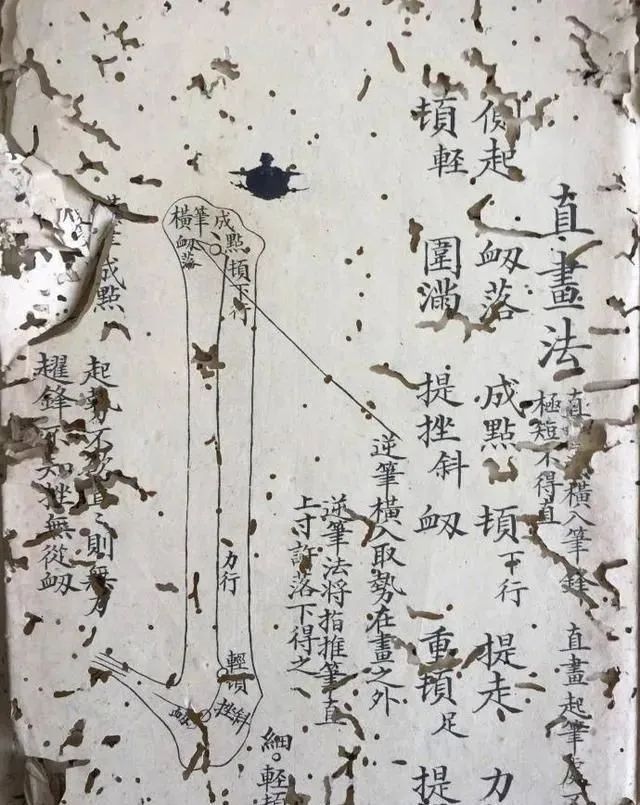 直畫法
直畫橫入筆鋒 直畫起筆處
極短不得直
起 衂落 成點 頓下行 提走 力
頓輕 滿 提挫斜衂 重頓足 提
逆筆橫入取勢在畫之外
逆筆法將指推筆直
上寸許落下得之
細。輕頓
橫筆成點
衂落
頓下行
力行
輕頓
挫斜
成點
起勢不直 則無力
趯鋒不知挫無從衂